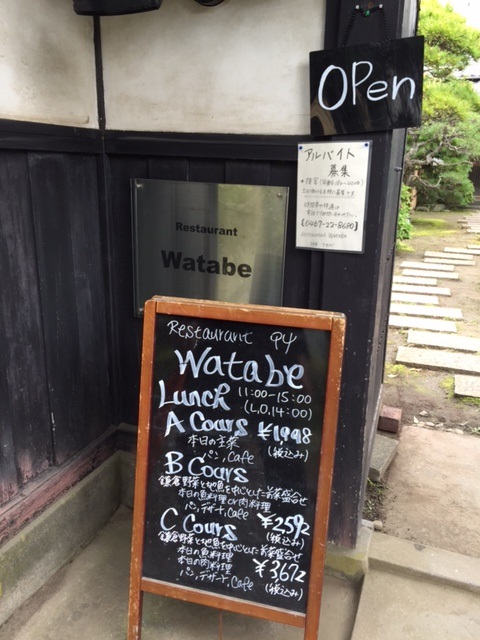 OPen
アルバイト
募集
0467-22-8680
Restaurant
Watabe
Restaurant
Watabe
Lunch 11:00-15:00
(L.O.14:00)
A Cours ¥1998
本日の主菜 (税込み)
パン,Cafe
B Cours
鎌倉野菜と地魚を中心とした前菜盛合せ
本日の魚料理 or 肉料理
パン,デザート,Cafe ¥2592
C Cours (税込み)
鎌倉野菜と地魚を中心とした前菜盛合せ
本日の魚料理
本日の肉料理 ¥3,672
パン,デザート,Cafe (税込み)